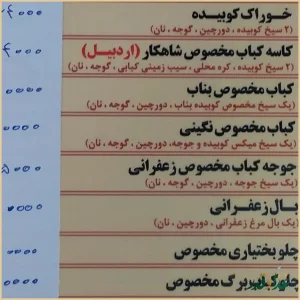 خوراک کوبیده
(۲ سیخ کوبیده ، دورچین ، گوجه ، نان)
کاسه کباب مخصوص شاهکار (اردبیل)
(۲ سیخ کوبیده ، کره محلی ، سیب زمینی کبابی ، گوجه ، نان)
کباب مخصوص بناب
(یک سیخ مخصوص کوبیده بناب ، دورچین ، گوجه ، نان)
کباب مخصوص نگینی
(یک سیخ میکس کوبیده و جوجه ، دورچین ، گوجه ، نان)
جوجه کباب مخصوص زعفرانی
(یک سیخ جوجه ، دورچین ، گوجه ، نان)
بال زعفرانی
(یک بال مرغ زعفرانی ، دورچین ، نان)
چلو بختیاری مخصوص
چلو کباب برگ مخصوص